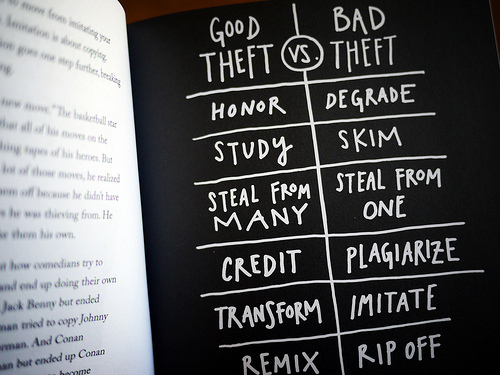 to move from imitating your
Imitation is about copying.
goes one step further, breaking
new move." The basketball star
that all of his moves on the
tapes of his heroes. But
lot of those moves, he realized
off because he didn't have
he was thieving from. He
them his own.
how comedians try to
and end up doing their own
Jack Benny but ended
man tried to copy Johnny
And Conan
but ended up Conan
become
GOOD THEFT
VS.
BAD THEFT
HONOR DEGRADE
STUDY SKIM
STEAL FROM MANY
STEAL FROM ONE
CREDIT PLAGIARIZE
TRANSFORM IMITATE
REMIX RIP OFF